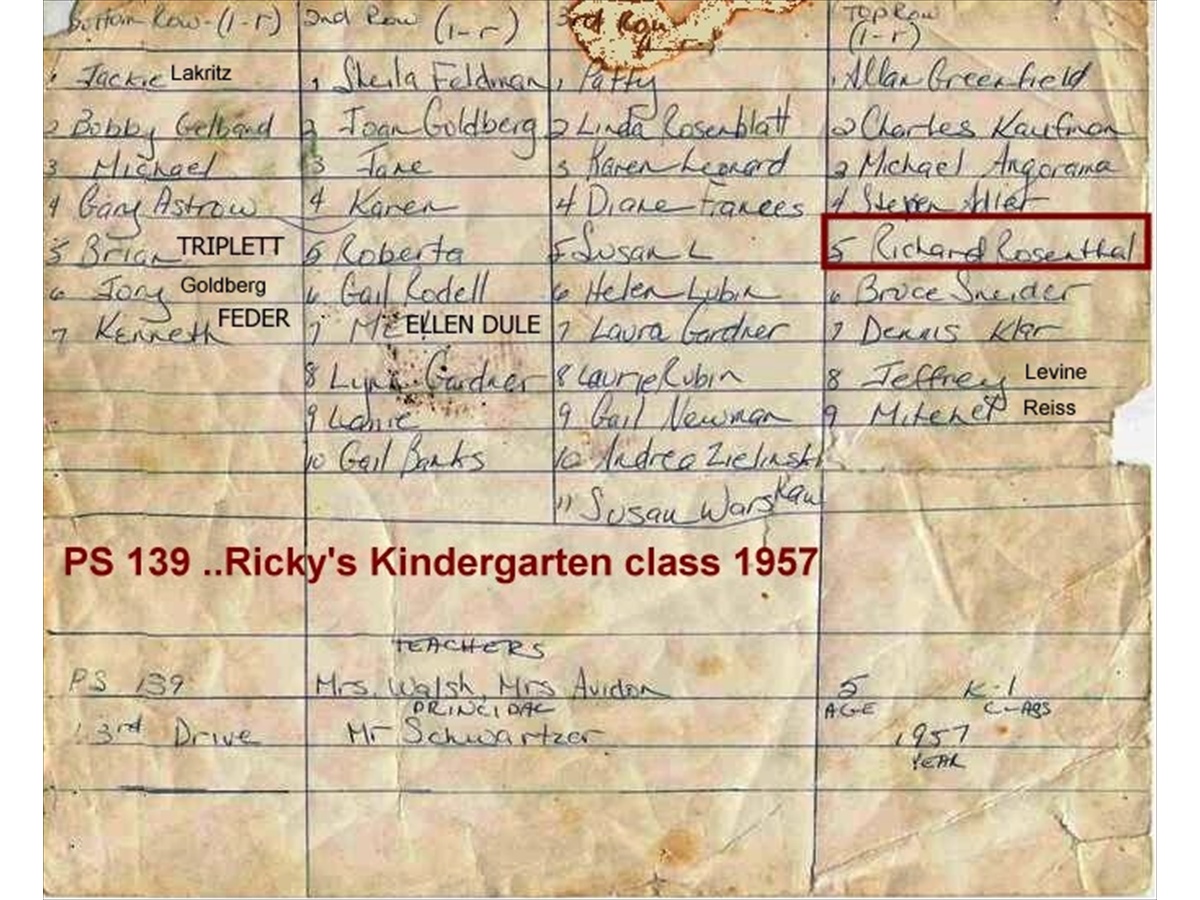 bottom Row - (l-r) 2nd Row (l-r) 3rd Row Top Row (l-r)
1 Jackie Lakritz 1 Sheila Feldman 1 Patty 1 Allan Greenfield
2 Bobby Gelband 2 Joan Goldberg 2 Linda Rosenblatt 2 Charles Kaufman
3 Michael 3 Jane 3 Karen Leonard 3 Michael Angorama
4 Gary Astrow 4 Karen 4 Diane Francees 4 Steven
5 Brian TRIPLETT 5 Roberta 5 Susan L 5 Richard Rosenthal
6 Goldberg 6 Gail Rodell 6 Helen Lubin 6 Bruce Sneider
7 Kenneth FEDER 7 ELLEN DULE 7 Laura Gardner 7 Dennis Klar
8 Lynn Gardner 8 Laurie Rubin 8 Jeffrey Levine
9 Lanie 9 Gail Newman 9 Reiss
10 Gail Banks 10 Andrea Zielinski
11 Susan Warskaw
PS 139 ..Ricky's Kindergarten class 1957
TEACHERS
PS 139 Mrs. Walsh, Mrs Avidon 5 K-1
PRINCIPAL AGE CLASS
3rd Drive Mr Schwartzer 1957
YEAR